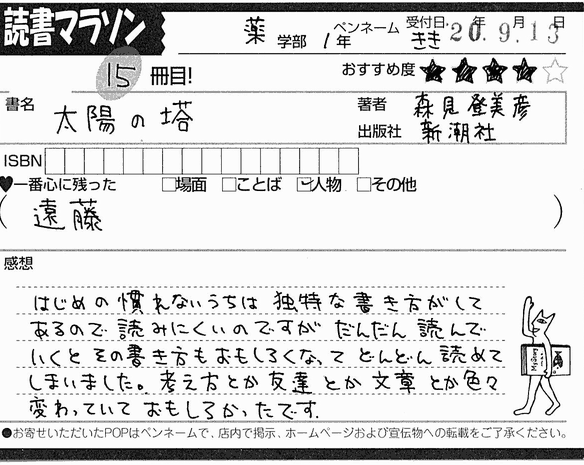 読書マラソン
薬 学部 1年 ペンネーム きき 受付日. 20年 9.月 13日
15 冊目! おすすめ度 ★★★★☆
書名 太陽の塔
著者 森見登美彦
出版社 新潮社
ISBN
♥一番心に残った □場面 □ことば ☑人物 □その他
( 遠藤 )
感想
はじめの慣れないうちは 独特な書き方がして
あるので 読みにくいのですが だんだん 読んで
いくと その書き方もおもしろくなって どんどん 読めて
しまいました。考え方とか 友達 とか 文章 とか色々
変わっていて おもしろかったです.
●お寄せいただいたPOPはペンネームで、店内で掲示、ホームページおよび宣伝物への転載をご了承ください。